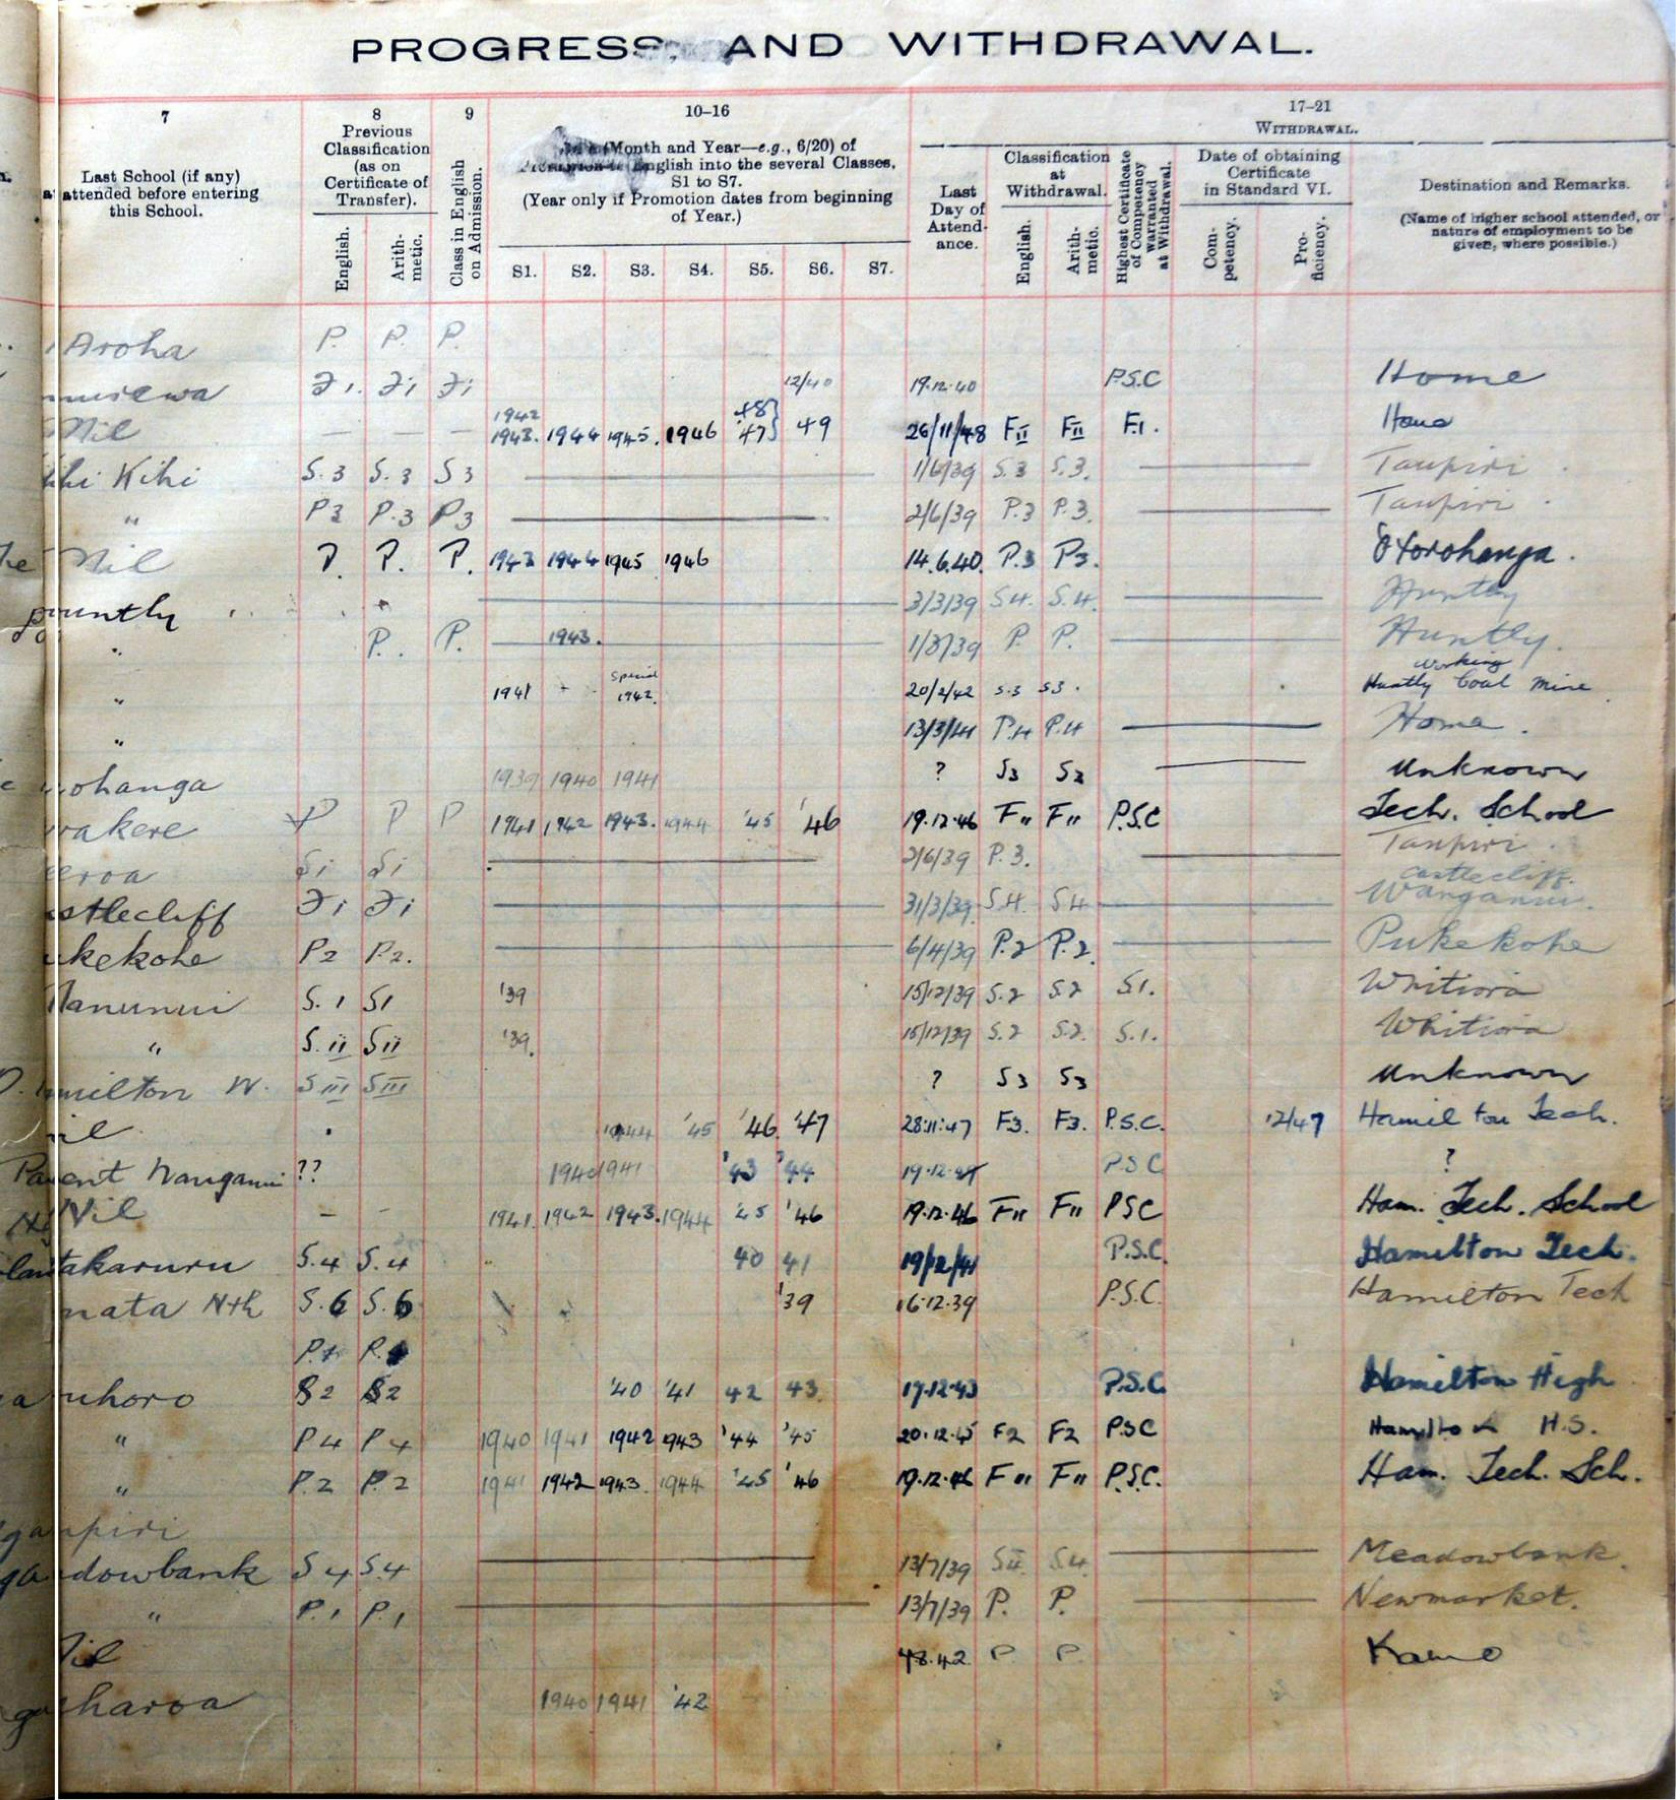 PROGRESS AND WITHDRAWAL.
7 8 9 10–16 17–21
Last School (if any) attended before entering this School.
Previous Classification (as on Certificate of Transfer).
English. Arithmetic.
Class in English on Admission.
(Month and Year—e.g., 6/20) of English into the several Classes, S1 to S7.
(Year only if Promotion dates from beginning of Year.)
S1. S2. S3. S4. S5. S6. S7.
WITHDRAWAL.
Last Day of Attendance.
Classification at Withdrawal.
English. Arithmetic.
Highest Certificate of Competency warranted at Withdrawal.
Date of obtaining Certificate in Standard VI.
Competency. Proficiency.
Destination and Remarks.
(Name of higher school attended, or nature of employment to be given, where possible.)
Aroha P. P. P.
12/40 19.12.40 P.S.C Home
Nil — — — 1942 1943. 1944 1945. 1946 '47 48 49 26/11/48 FII FII F.1.
Kihi S.3 S.3 S3 1/6/39 S.3 S.3. Taupiri
" P3 P.3 P3 2/6/39 P.3 P.3. Taupiri
Nil P. P. P. 1943 1944 1945 1946 14.6.40. P.3 P3. Otorohanga.
untly 3/3/39 S4. S.4. Huntly
" P. P. 1943. 1/3/39 P P. Huntly.
" 1941 Special 1942. 20/2/42 S.3 S3. working Huntly Coal Mine
" 13/3/41 P.4 P.4 Home.
ohanga 1939 1940 1941 ? S3 S3 Unknown
akere P P P 1941 1942 1943. 1944 '45 '46 19.12.46 F" F" P.S.C Tech. School
eroa S1 S1 2/6/39 P.3. Taupiri
stlecliff 31/3/39. S.4. S4 Castlecliff. Wanganui.
kekohe P2 P2. 6/4/39 P.2 P.2. Pukekohe
anunui S.1 S1 '39 15/12/39 S.2 S2 S1. Whitiora
" S.II SII '39. 15/12/39 S.2 S.2. S.1. Whitiora
milton W. SIII SIII ? S3 S3 Unknown
il 1944 '45 '46. '47 28:11:47 F3. F3. P.S.C. 12/47 Hamilton Tech.
Wanganui ?? 1940 1941 '43 '44 19.12.44 P.S.C ?
Nil — — 1941. 1942 1943. 1944 '45 '46 19.12.46 F" F" PSC Ham. Tech. School
takaruru S.4 S.4 40 41 19/12/41 P.S.C. Hamilton Tech.
nata Nth S.6 S.6 '39 16.12.39 P.S.C. Hamilton Tech
uhoro S2 S2 '40 '41 42 43 17.12.43 P.S.C. Hamilton High
" P4 P4 1940 1941 1942 1943 '44 '45 20.12.45 F2 F2 PSC Hamilton H.S.
" P.2 P.2 1941 1942 1943. 1944 '45 '46 19.12.46 F" F" P.S.C. Ham. Tech. Sch.
piri
dowbank S4 S.4 13/7/39 S4. Meadowbank.
" P.1 P.1 13/7/39 P. P. Newmarket.
8.42 P P Kamo
haroa 1940 1941 '42